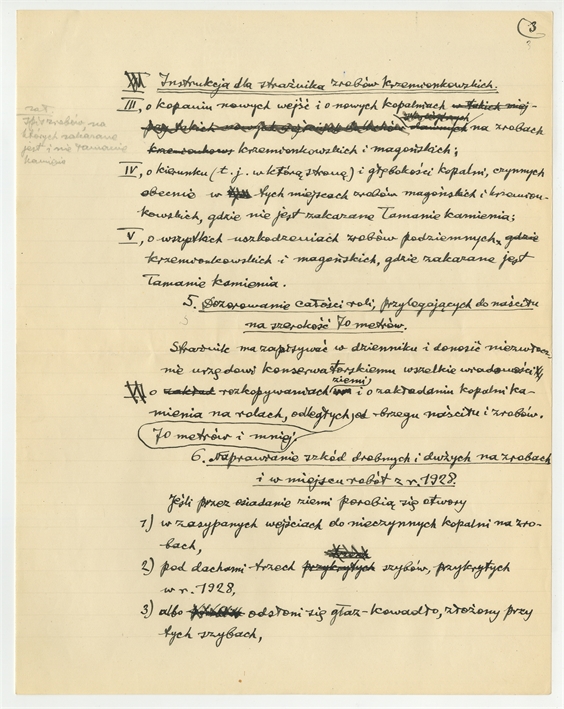 3
Instrukcja dla strażnika zrobów krzemionkowskich.
III, o kopaniu nowych wejść i o nowych kopalniach w takich miej-
na zrobach
krzemionkowskich i magońskich;
IV, o kierunku (t. j. w którą stronę) i głębokości kopalni, czynnych
obecnie w tych miejscach zrobów magońskich i krzemion-
kowskich, gdzie nie jest zakazane łamanie kamienia;
V, o wszystkich uszkodzeniach zrobów podziemnych, gdzie
krzemionkowskich i magońskich, gdzie zakazane jest
łamanie kamienia.
5. Dozorowanie całości roli, przylegających do naścitu
na szerokość 70 metrów.
Strażnik ma zapisywać w dzienniku i donosić niezwłocz-
nie urzędowi konserwatorskiemu wszelkie wiadomości
ziemi
o zakład rozkopywaniach i o zakładaniu kopalni ka-
mienia na rolach, odległych od brzegu naścitu i zrobów.
70 metrów i mniej.
6. Naprawianie szkód drobnych i dużych na zrobach
i w miejscu robót z r. 1928.
Jeśli przez osiadanie ziemi porobią się otwory
1) w zasypanych wejściach do nieczynnych kopalni na zro-
bach,
2) pod dachami trzech przykrytych szybów, przykrytych
w r. 1928,
3) albo odsłoni się głaz-kowadło, złożony przy
tych szybach,
zał.
spis zrobów, na
których zakazane
jest i nie łamanie
kamienia